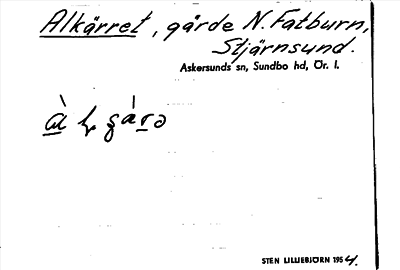 Alkärret, gärde N. Fatburn,
Stjärnsund.
Askersunds sn, Sundbo hd, Ör. l.
STEN LILLIEBJÖRN 1954.